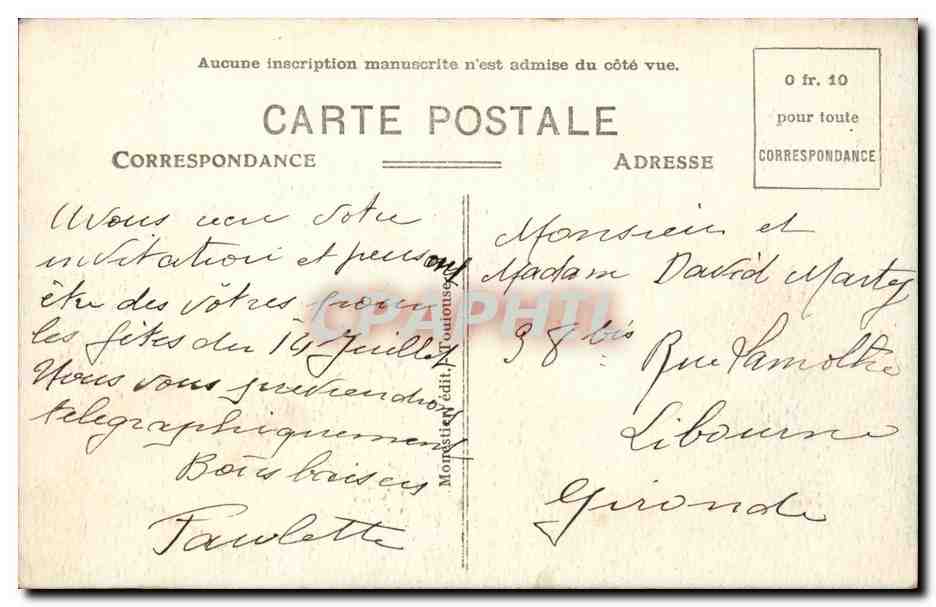 Aucune inscription manuscrite n'est admise du côté vue.
CARTE POSTALE
CORRESPONDANCE
ADRESSE
0 fr. 10
pour toute
CORRESPONDANCE
Avons reçu votre
invitation et pensons
être des vôtres pour
les fêtes du 14 Juillet
Nous vous préviendrons
telegraphiquement
Bons baisers
Paulette
Monestier, édit., Toulouse
Monsieur et
Madam David Martey
38 bis
Rue Lamothe
Libourne
Gironde
CPAPHIL